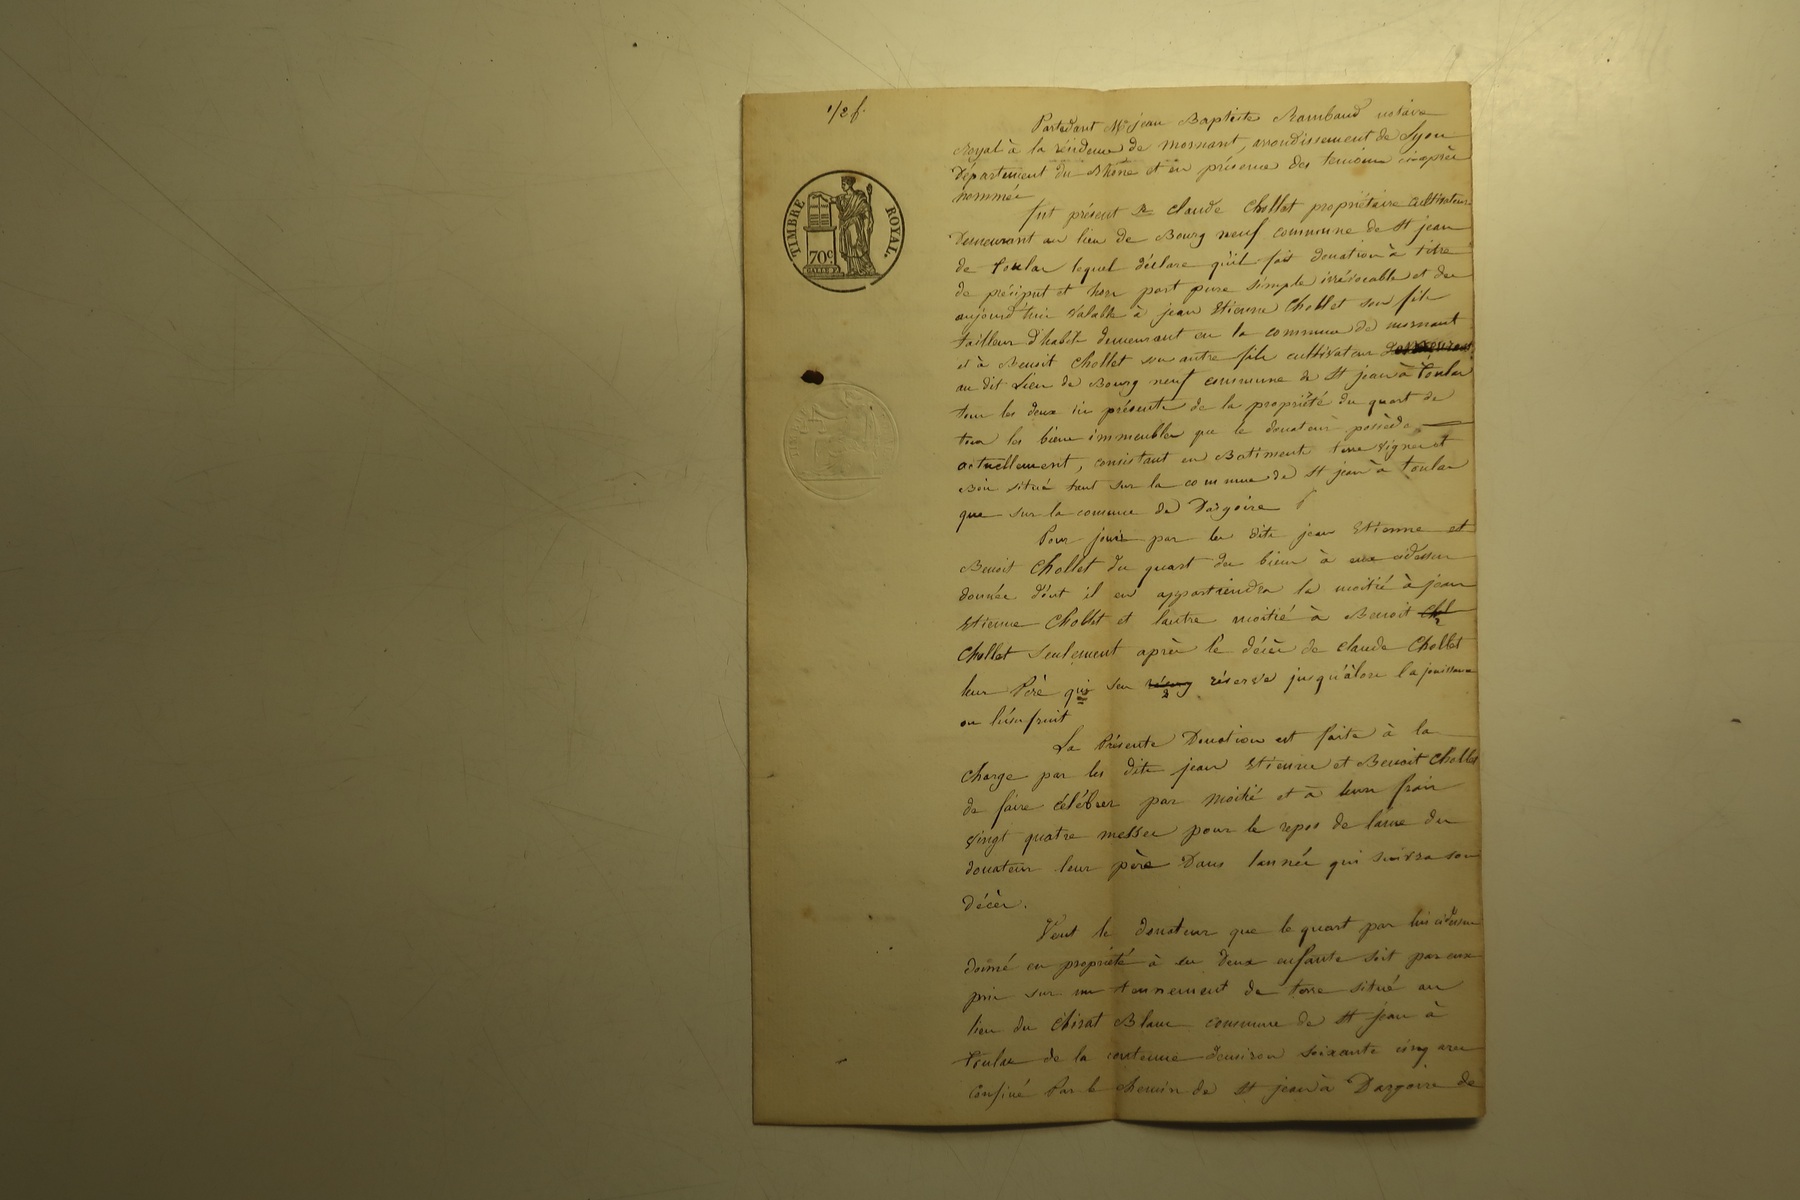 1/2 f.
TIMBRE ROYAL.
70c
Pardevant Me jean Baptiste Rambaud notaire
Royal à la résidence de mornant, arrondissement de Lyon
Département du Rhône et en présence des temoins ciaprès
nommés
fut présent Sr claude Chollet propriétaire cultivateur
demeurant au lieu de Bourg neuf commune de St jean
de toulas lequel déclare qu'il fait donation à titre
de préciput et hors part pure simple irrévocable et des
aujourd'hui valable à jean Etienne Chollet son fils
tailleur d'habits demeurant en la commune de mornant
et à Benoit Chollet son autre fils cultivateur demeurant
au dit Lieu de Bourg neuf commune de St jean à toulas
tous les deux ici présents de la propriété du quart de
tous les biens immeubles que le donateur possède
actuellement, consistant en Batiments terre vignes et
Bois situés tant sur la commune de St jean à toulas
que sur la commune de Dargoire
Pour jouir par les dits jean Etienne et
Benoit Chollet du quart des biens à eux cidessus
donnés dont il en appartiendra la moitié à jean
Etienne Chollet et lautre moitié à Benoit Chl
Chollet seulement après le décès de claude Chollet
leur Père qui sen réserve jusqu'àlors la jouissance
ou lusufruit
La Présente Donation est faite à la
charge par les dits jean Etienne et Benoit Chollet
de faire célébrer par moitié et à leurs frais
vingt quatre messes pour le repos de lame du
donateur leur père Dans lannée qui suivra son
décès.
Veut le donateur que le quart par lui cidessus
donné en propriété à ses deux enfants soit par eux
pris sur un tennement de terre situé au
lieu du Chirat Blanc commune de St jean à
toulas de la contenue denviron soixante cinq ares
Confiné Par le chemin de St jean à Dargoire de